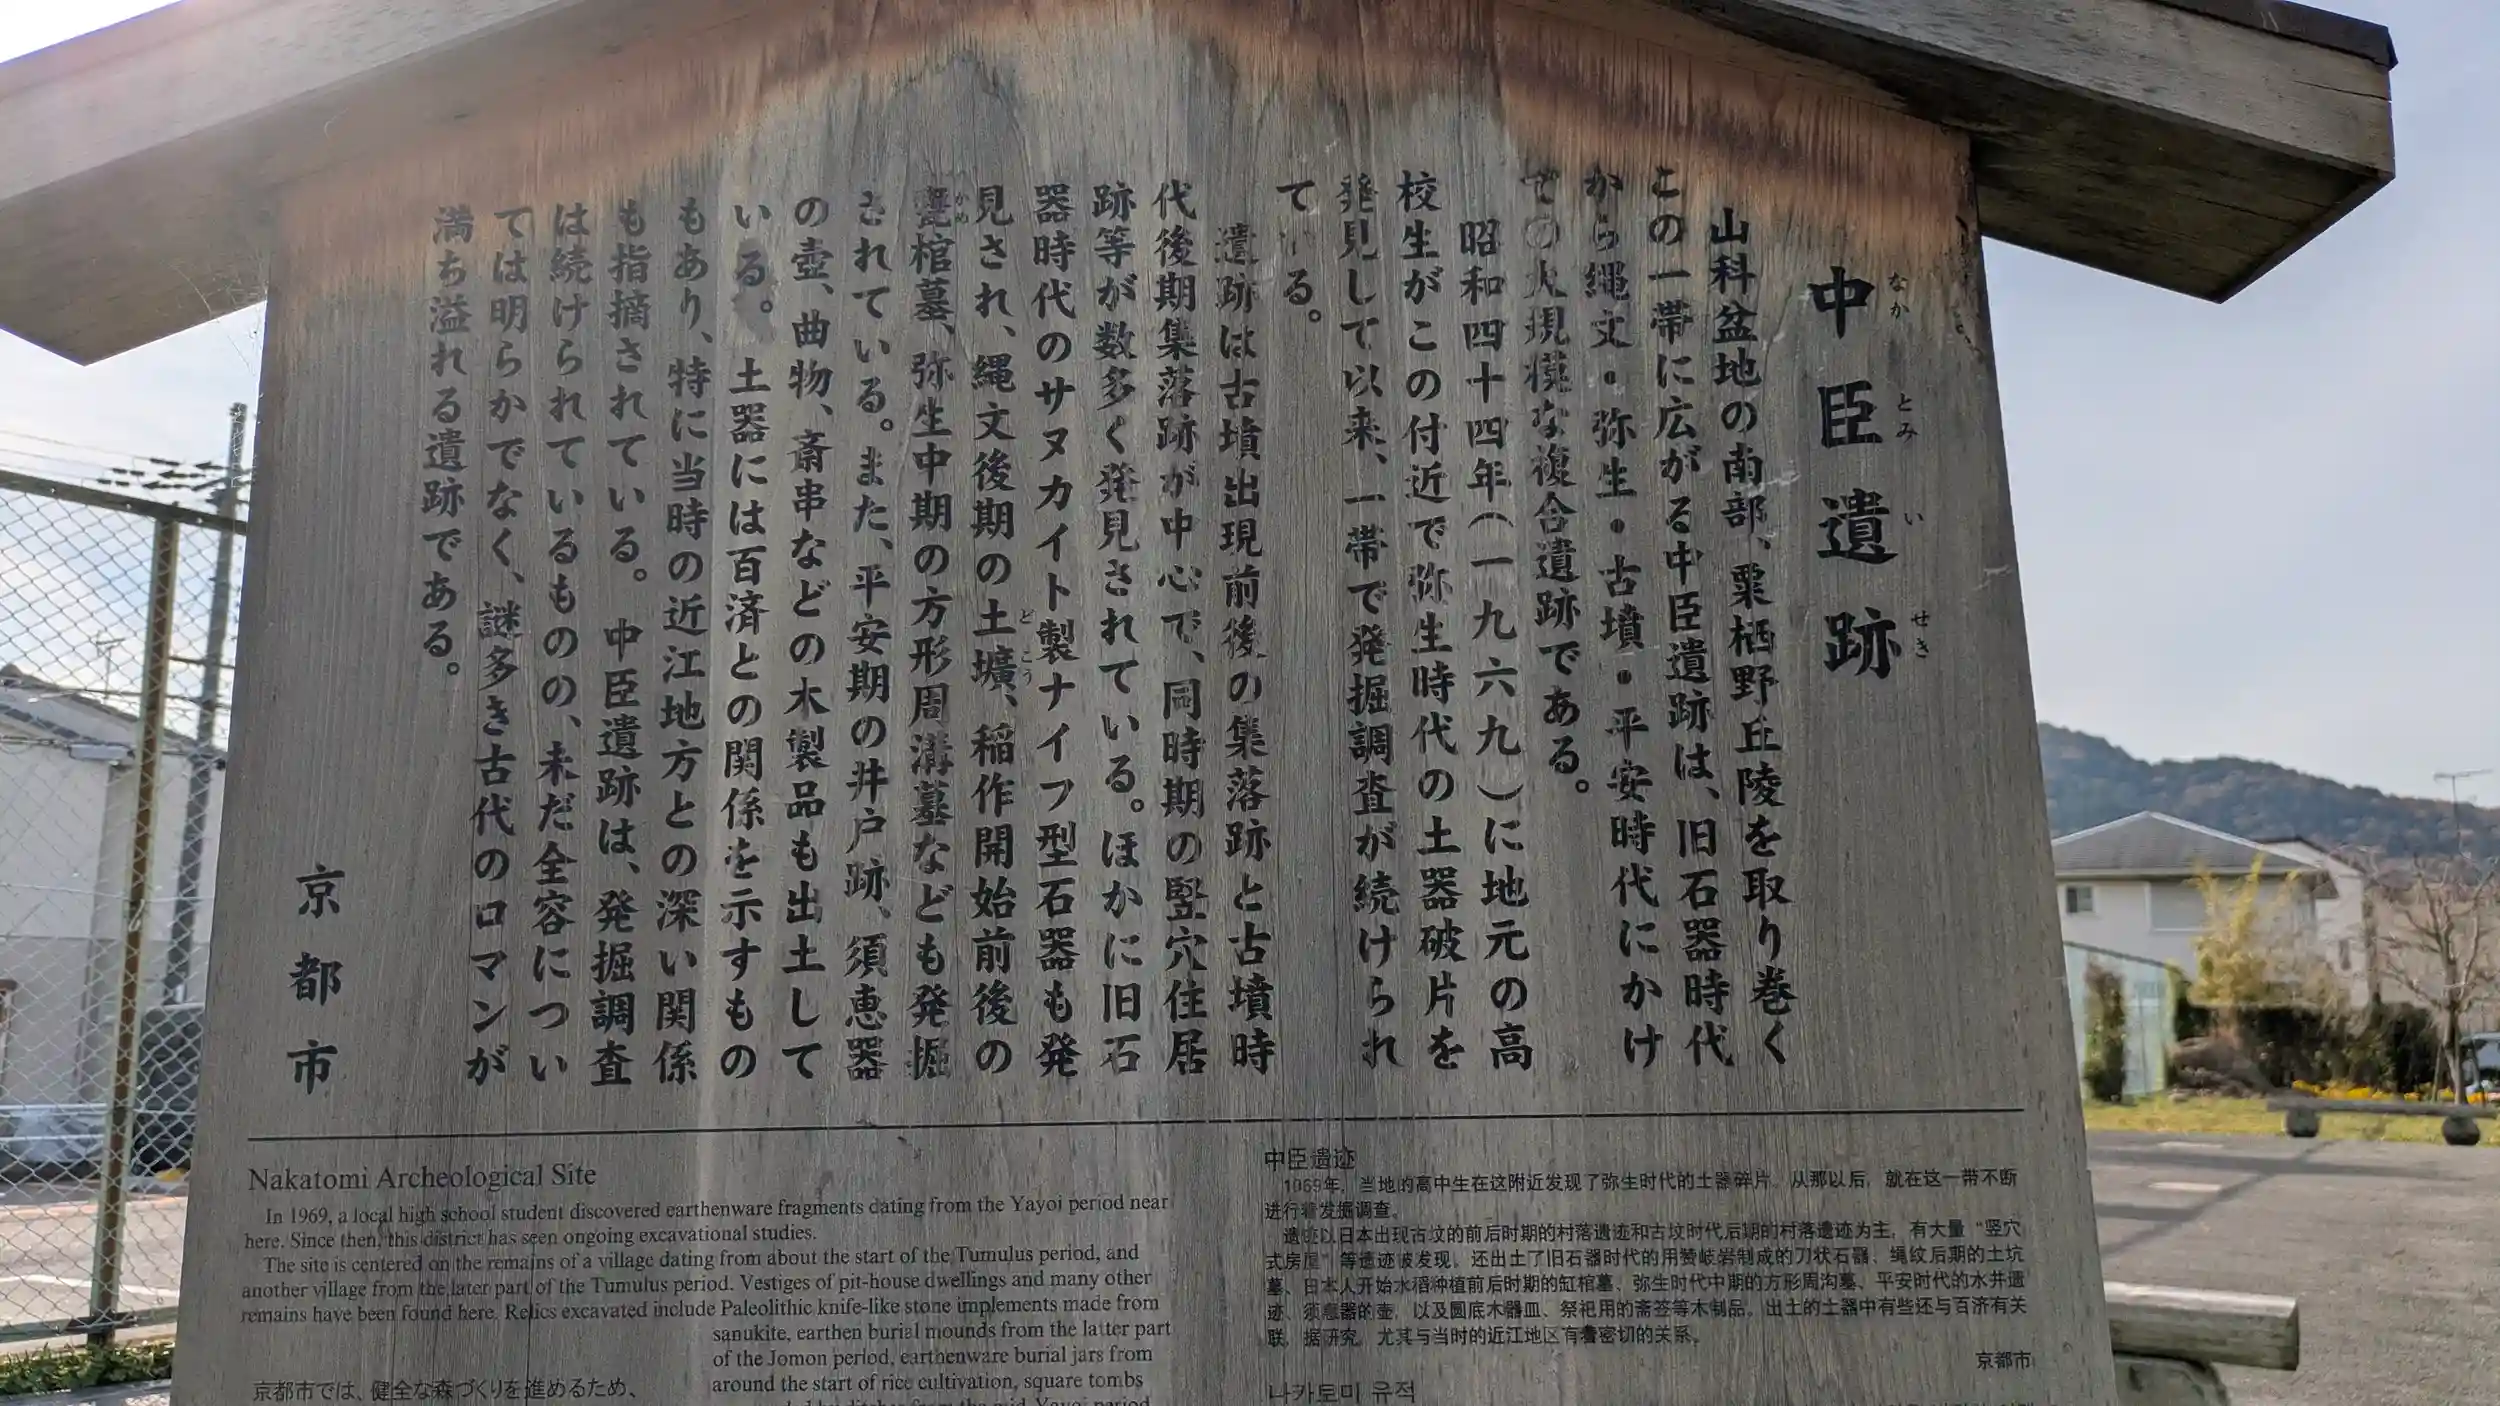 中臣遺跡
なかとみいせき
山科盆地の南部、栗栖野丘陵を取り巻く
この一帯に広がる中臣遺跡は、旧石器時代
から縄文・弥生・古墳・平安時代にかけ
ての大規模な複合遺跡である。
昭和四十四年(一九六九)に地元の高
校生がこの付近で弥生時代の土器破片を
発見して以来、一帯で発掘調査が続けられ
ている。
遺跡は古墳出現前後の集落跡と古墳時
代後期集落跡が中心で、同時期の竪穴住居
跡等が数多く発見されている。ほかに旧石
器時代のサヌカイト製ナイフ型石器も発
見され、縄文後期の土壙、稲作開始前後の
どこう
甕棺墓、弥生中期の方形周溝墓なども発掘
かめ
されている。また、平安期の井戸跡、須恵器
の壺、曲物、斎串などの木製品も出土して
いる。土器には百済との関係を示すもの
もあり、特に当時の近江地方との深い関係
も指摘されている。中臣遺跡は、発掘調査
は続けられているものの、未だ全容につい
ては明らかでなく、謎多き古代のロマンが
満ち溢れる遺跡である。
京都市
Nakatomi Archeological Site
In 1969, a local high school student discovered earthenware fragments dating from the Yayoi period near
here. Since then, this district has seen ongoing excavational studies.
The site is centered on the remains of a village dating from about the start of the Tumulus period, and
another village from the later part of the Tumulus period. Vestiges of pit-house dwellings and many other
remains have been found here. Relics excavated include Paleolithic knife-like stone implements made from
sanukite, earthen burial mounds from the latter part
of the Jomon period, earthenware burial jars from
around the start of rice cultivation, square tombs
京都市では、健全な森づくりを進めるため、
中臣遗迹
1969年，当地的高中生在这附近发现了弥生时代的土器碎片。从那以后，就在这一带不断
进行着发掘调查。
遗迹以日本出现古坟的前后时期的村落遗迹和古坟时代后期的村落遗迹为主，有大量“竖穴
式房屋”等遗迹被发现。还出土了旧石器时代的用赞岐岩制成的刀状石器、绳纹后期的土坑
墓、日本人开始水稻种植前后时期的缸棺墓、弥生时代中期的方形周沟墓、平安时代的水井遗
迹、须惠器的壶，以及圆底木器皿、祭祀用的斋签等木制品。出土的土器中有些还与百济有关
联，据研究，尤其与当时的近江地区有着密切的关系。
京都市
나카토미 유적